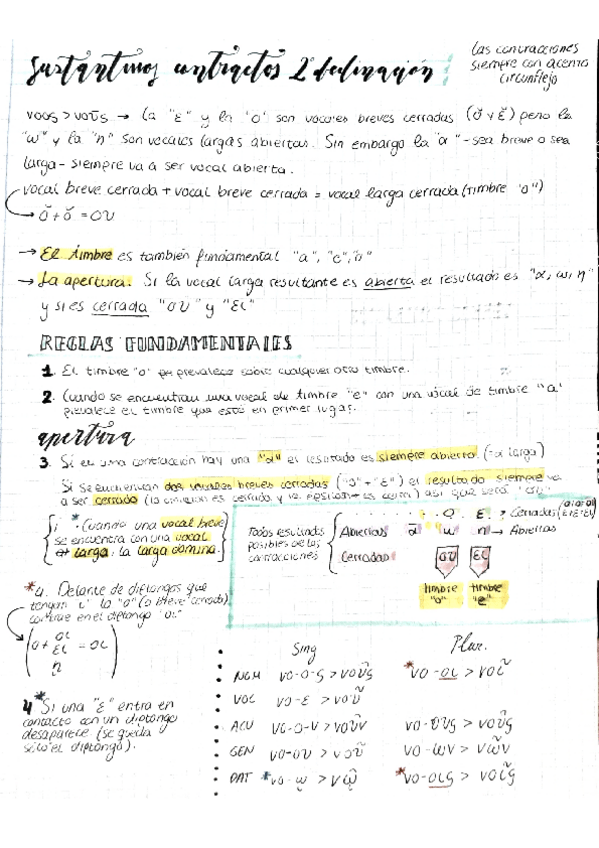 Sustantivos contractos 2ª declinación
Las contracciones
siempre con acento
circunflejo
νοος > νοῦς → La "ε" y la "o" son vocales breves cerradas (ŏ y ĕ) pero la
"ω" y la "η" son vocales largas abiertas. Sin embargo la "α" - sea breve o sea
larga - siempre va a ser vocal abierta.
vocal breve cerrada + vocal breve cerrada = vocal larga cerrada (timbre "o")
ŏ + ŏ = ου
→ El timbre es también fundamental "a", "e", "o"
→ La apertura. Si la vocal larga resultante es abierta el resultado es "α, ω, η"
y si es cerrada "ου" y "ει"
REGLAS FUNDAMENTALES
1. El timbre "o" prevalece sobre cualquier otro timbre.
2. Cuando se encuentran una vocal de timbre "e" con una vocal de timbre "a"
prevalece el timbre que está en primer lugar.
apertura
3. Si en una contracción hay una "α" el resultado es siempre abierto. (-α larga)
Si se encuentran dos vocales breves cerradas ("o" + "ε") el resultado siempre va
a ser cerrado (la omicron es cerrada y la epsilon también) así que será "ου".
* Cuando una vocal breve
se encuentra con una vocal
larga, la larga domina.
Todos resultados
posibles de las
contracciones
Abiertas ᾱ ω η → Abiertas
O E → Cerradas
Cerradas ου ει
timbre "o" timbre "e"
*4. Delante de diptongos que
tengan "ι" la "o" (o breve cerrada)
contrae en el diptongo "οι"
o + οι ει η = οι
4* Si una "ε" entra en
contacto con un diptongo
desaparece (se queda
sólo el diptongo).
Sing Plur.
NOM νο-ο-ς > νοῦς *νο-οι > νοῖ
VOC νο-ε > νοῦ
ACU νο-ο-ν > νοῦν νο-ους > νοῦς
GEN νο-ου > νοῦ νο-ων > νῶν
DAT *νο-ῳ > νῷ *νο-οις > νοῖς